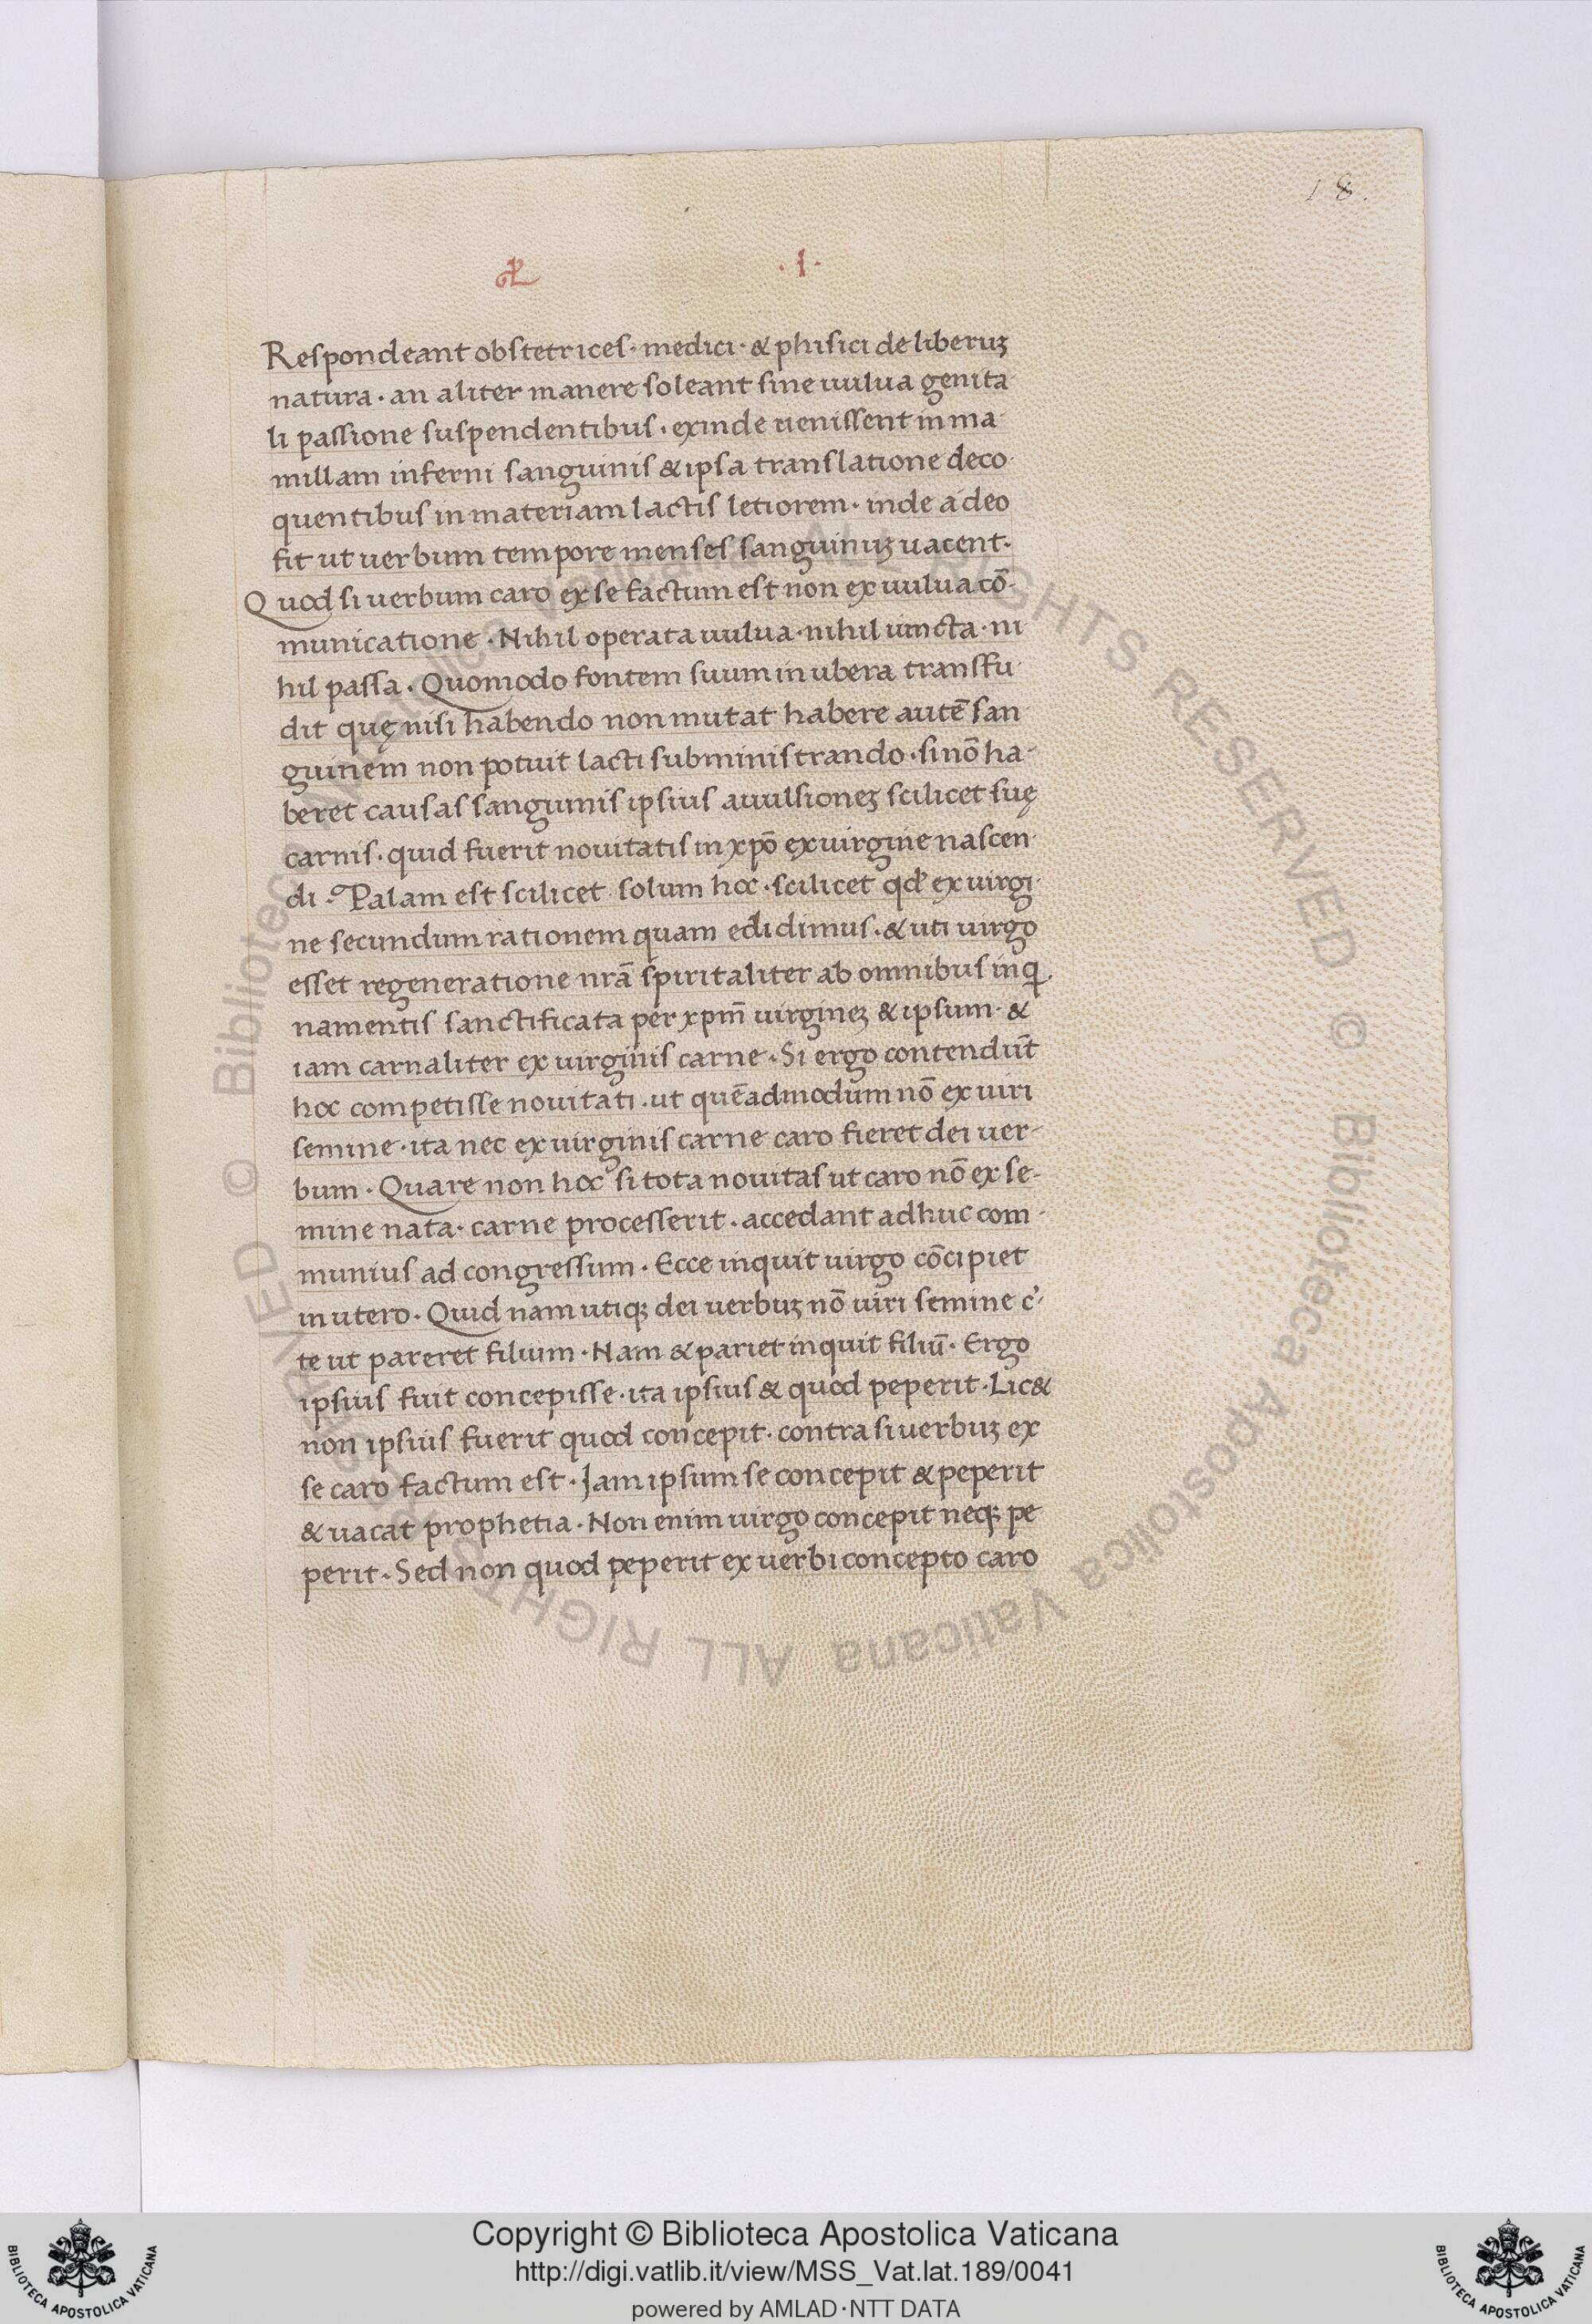 18.
.I.
Respondeant obstetrices · medici · & phisici de liberuꝫ
natura · an aliter manere soleant sine uulua genita
li passione suspendentibus · exinde uenissent in ma
millam inferni sanguinis & ipsa translatione deco
quentibus in materiam lactis letiorem · inde adeo
fit ut uerbum tempore menses sanguinuꝫ uacent ·
Quod si uerbum caro ex se factum est non ex uulua cō-
municatione · Nihil operata uulua · nihil uincta · ni
hil passa · Quomodo fontem suum in ubera transfu
dit quę nisi habendo non mutat habere autē san
guinem non potuit lacti subministrando · si nō ha-
beret causas sanguinis ipsius auulsioneꝫ scilicet suę
carnis · quid fuerit nouitatis in xpō ex uirgine nascen
di · Palam est scilicet solum hoc · scilicet qđ ex uirgi
ne secundum rationem quam edidimus · & uti uirgo
esset regeneratione nrā spiritaliter ab omnibus inq
namentis sanctificata per xpm̄ uirgineꝫ & ipsum · &
iam carnaliter ex uirginis carne · Si ergo contendūt
hoc competisse nouitati · ut quēadmodum nō ex uiri
semine · ita nec ex uirginis carne caro fieret dei uer-
bum · Quare non hoc si tota nouitas ut caro nō ex se-
mine nata · carne processerit · accedant adhuc com
munius ad congressum · Ecce inquit uirgo cōcipiet
in utero · Quid nam utiqꝫ dei uerbuꝫ nō uiri semine c̉
te ut pareret filium · Nam & pariet inquit filiū · Ergo
ipsius fuit concepisse · ita ipsius & quod peperit · Lic&
non ipsius fuerit quod concepit · contra si uerbuꝫ ex
se caro factum est · Jam ipsum se concepit & peperit
& uacat prophetia · Non enim uirgo concepit neqꝫ pe
perit · Sed non quod peperit ex uerbi concepto caro
© Biblioteca Apostolica Vaticana ALL RIGHTS RESERVED
Copyright © Biblioteca Apostolica Vaticana
http://digi.vatlib.it/view/MSS_Vat.lat.189/0041
powered by AMLAD·NTT DATA
BIBLIOTECA APOSTOLICA VATICANA
BIBLIOTECA APOSTOLICA VATICANA